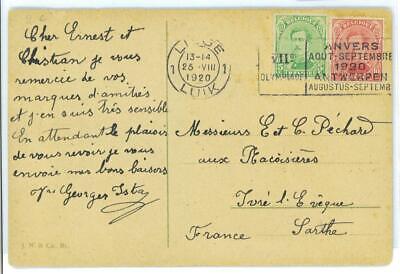 Cher Ernest et
Christian je vous
remercie de vos
marques d'amitiés
et j'en suis très sensible
En attendant le plaisir
de vous revoir je vous
envoie mes bons baisers
Georges
J. W. & Co. Bn.
LIEGE
13-14
25 ·VIII
1920
1 1
LUIK
VIIE
ANVERS
AOUT-SEPTEMBRE
1920
ANTWERPEN
AUGUSTUS-SEPTEMB
Messieurs E et C. Péchard
aux
Ivré l'Evêque
France Sarthe